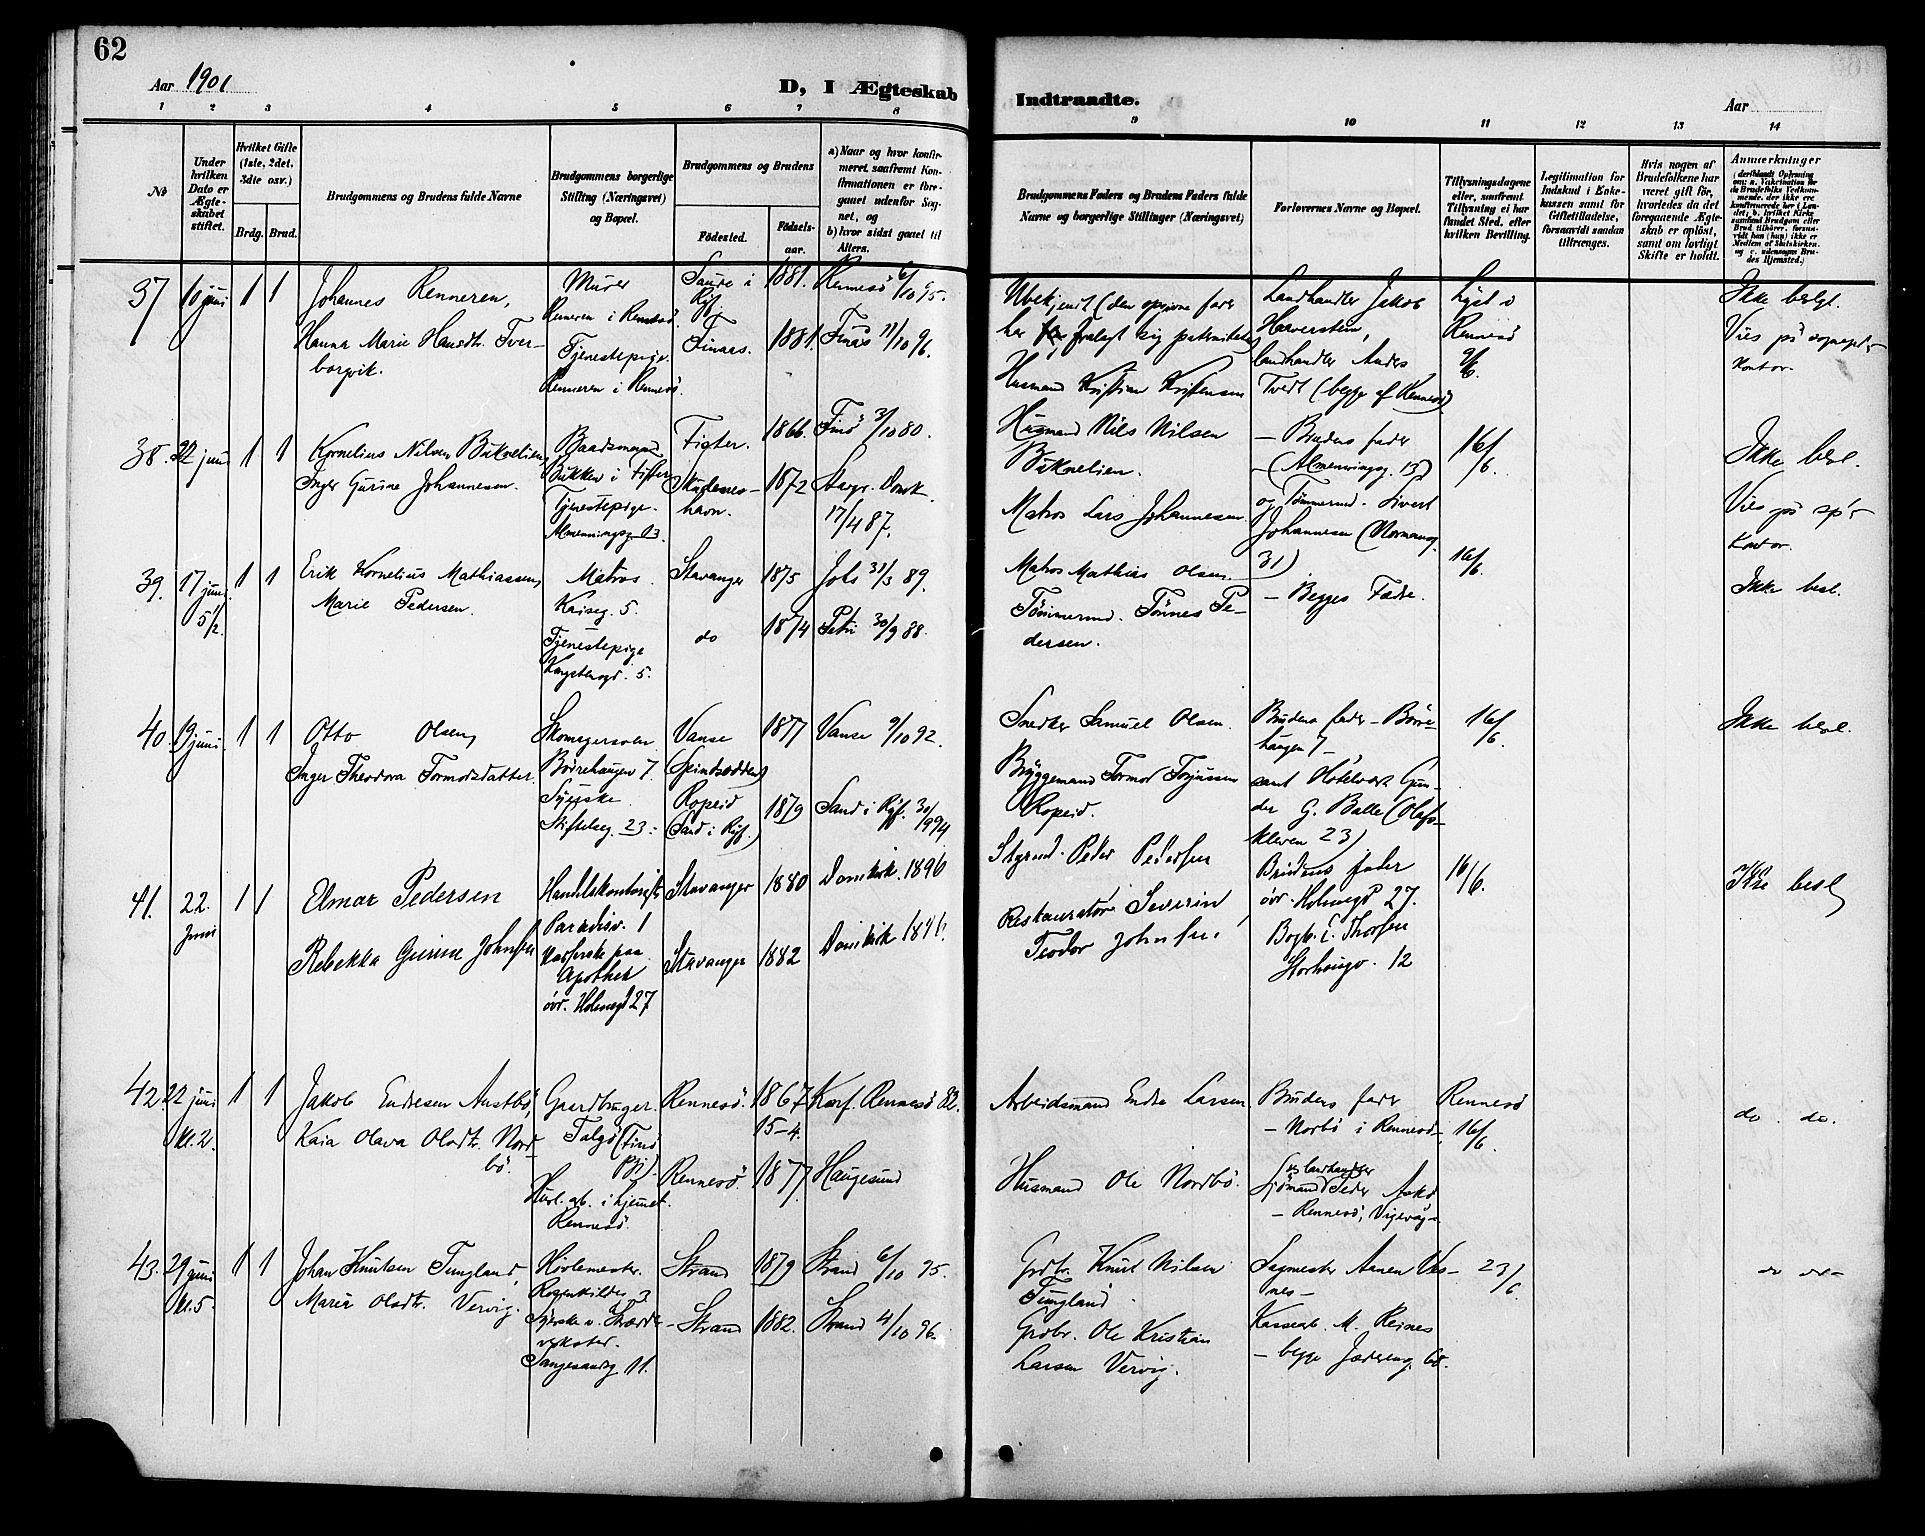 62
Aar 1901
D, I Ægteskab
Indtraadte.
Aar
1 2 3 4 5 6 7 8 9 10 11 12 13 14
No
Under hvilken Dato er Ægteskabet stiftet.
Hvilket Gifte (1ste, 2det, 3die osv.)
Brdg. Brud.
Brudgommens og Brudens fulde Navne
Brudgommens borgerlige Stilling (Næringsvei) og Bopæl.
Brudgommens og Brudens
Fødested.
Fødselsaar.
a) Naar og hvor konfirmeret, saafremt Konfirmationen er foregaaet udenfor Sognet, og
b) hvor sidst gaaet til Alters.
Brudgommens Faders og Brudens Faders fulde Navne og borgerlige Stillinger (Næringsvei)
Forlovernes Navne og Bopæl.
Tillysningsdagene eller, saafremt Tillysning ei har fundet Sted, efter hvilken Bevilling.
Legitimation for Indskud i Enkekassen samt for Giftetilladelse, forsaavidt saadan tiltrænges.
Hvis nogen af Brudefolkene har været gift før, hvorledes da det foregaaende Ægteskab er opløst, samt om lovligt Skifte er holdt.
Anmærkninger
37
10 juni
1 1
Johannes Renneren,
Hanna Marie Hansdtr. Tverborgvik.
Murer
Renneren i Rennesö.
Tjenestepige
Renneren i Rennesö.
Saude i Ryf.
Finaas.
1881.
1881.
Rennesö 6/10 95.
Finås 11/10 96.
Ubekjendt (den opgivne fader har fralagt sig paterniteten)
Husmand Kristian Kristensen
Landhandler Jakob Haverstein,
landhandler Anders Tvedt (begge af Rennesö)
Lyst i Rennesö 9/6.
Ikke beslgt.
Vies på sognepr. kontor.
38.
22 juni
1 1
Kornelius Nilsen Buknelien,
Inger Gurine Johannesen.
Baadsmand
Bukken i Fister
Tjenestepige.
Almenningsg. 13.
Fister.
Skudeneshavn.
1866.
1872
Finö 3/10 80.
Stavgr. Domk. 17/4 87.
Husmand Nils Nilsen Buknelien.
Matros Lars Johannesen.
– Brudens fader
– (Almenningsg. 13)
og Tømmermd. Sivert Johannesen (Normannsg. 31)
16/6.
Ikke besl.
Vies på spr. kontor.
39.
17 juni
5 1/2.
1 1
Erik Kornelius Mathiassen,
Marie Pedersen.
Matros.
Kaiseg. 5.
Tjenestepige
Kongstensgd. 5.
Stavanger
do
1875
1874
Johs 31/3 89.
Petri 30/9 88.
Matros Mathias Olsen.
Tömmermd. Tönnes Pedersen.
– Begges Fædre.
16/6.
Ikke besl.
40.
19 juni.
1 1
Otto Olsen,
Inger Theodora Tormodsdatter.
Skomagersven.
Börrehaugen 7.
Syerske
Stiftelseg. 23.
Vanse
Ropeid
Sand i Ryf.)
1877
1879
Vanse 9/10 92.
Sand i Ryf. 30/9 94
Snedker Samuel Olsen.
Bryggemand Tormod Torjussen Ropeid.
Brudens fader – Börrehaugen 7 –
samt Hotelvært Gunder G. Balle (Olafskleven 23)
16/6.
Ikke besl.
41.
22. Juni
1 1
Elmar Pedersen
Rebekka Gurine Johnsen
Handelskontorist
Paradisv. 1
Kasserske paa Apothek
övr. Holmegd 27
Stavanger
Stavanger
1880
1882
Domkirk. 1896
Domkirk 1896.
Styrmd. Peder Pedersen
Restauratör Severin Teodor Johnsen
Brudens fader
övr. Holmegd 27.
Bogb. E. Thorsen
Storhaugv. 12
16/6.
Ikke besl
42.
22 juni
kl. 2.
1 1
Jakob Endresen Austbö,
Kaia Olava Olsdtr. Nordbö.
Gaardbruger.
Talgö (Finö Pgj.)
Husl. arb. i hjemmet.
Rennesö.
Rennesö.
Rennesö.
1867
15-4.
1877
Konf. Rennesö 82.
Haugesund
Arbeidsmand Endre Larsen
Husmand Ole Nordbö.
Brudens fader
– Norbö i Rennesö –
og landhandler
Sjömand Peder Askö
– Rennesö, Vigevåg –
Rennesö 16/6.
do. do.
43.
29 juni
kl. 5.
1 1
Johan Knutsen Tungland,
Maria Olsdtr. Vervig.
Hövlemester.
Ragenhildsg. 3
Syerske
Langesandg 11.
Strand
– Strand
1879
1882.
Strand 6/10 95.
Strand 4/10 96.
Grdbr. Knut Nilsen Tungland.
Grdbr. Ole Kristian Larsen Vervig.
Sagmester Aanen Vesnes –
Kassearb. M. Reines
– begge Jæderveig. 68.
23/6.
do do